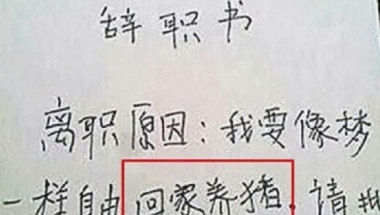 辞职书
离职原因：我要像梦
一样自由回家养猪，请批